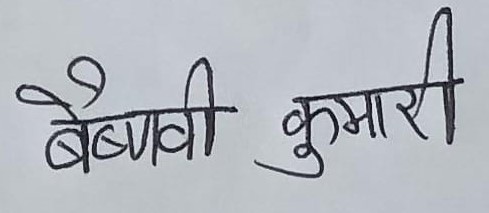 बैष्णवी कुमारी